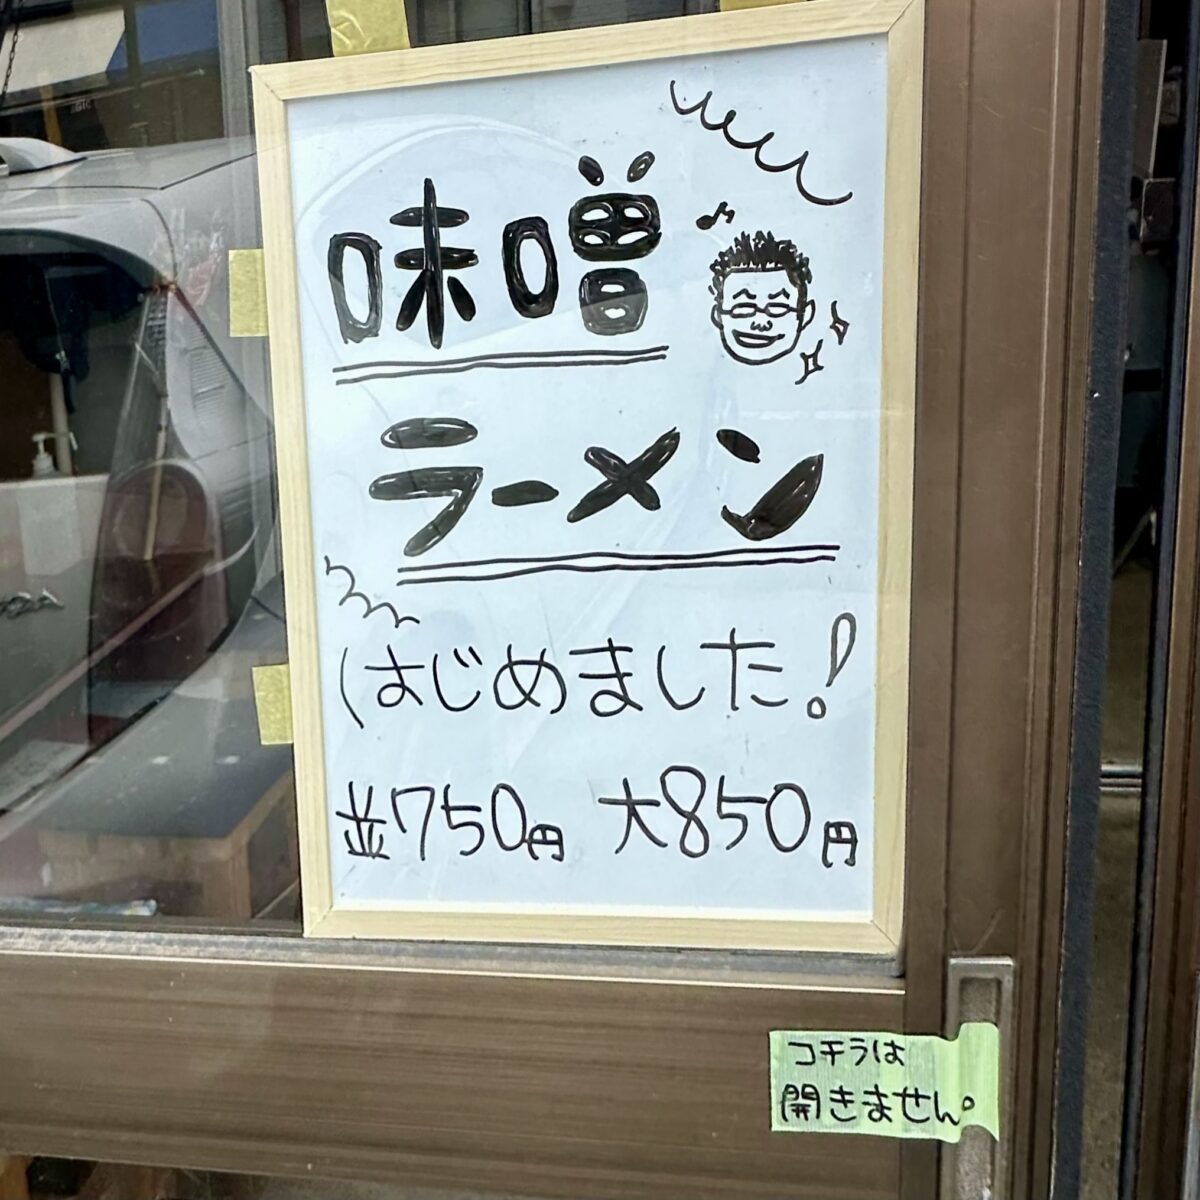 味噌
ラーメン
はじめました!
並750円 大850円
コチラは
開きません。